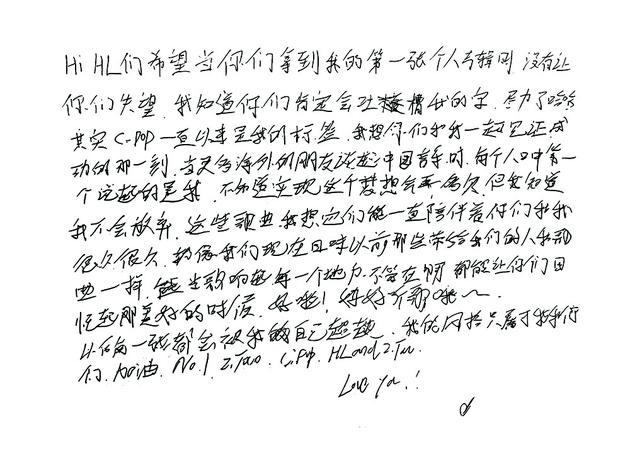 Hi HL们希望当你们拿到我的第一张个人专辑时没有让
你们失望.我知道你们肯定会吐槽我的字.尽力了哈哈
其实C-POP一直以来是我的标签.我想你们和我一起见证成
功的那一刻.当更多海外的朋友谈起中国音乐时.每个人口中第一
个说起的是我.不知道实现这个梦想会要多久.但我知道
我不会放弃.这些歌曲我想它们能一直陪伴着你们和我
很久很久.就像我们现在回味以前那些带给我们的人和歌
曲一样.能当歌响起每一个地方不管在哪都能让你们回
忆起那美好的时候.好啦!好好介绍哦~
以后每一张都会被我自己超越.我的风格只属于我和你
们.加油.No.1 Z.Tao.C-Pop.HL and Z.Tao.
Love ya.!